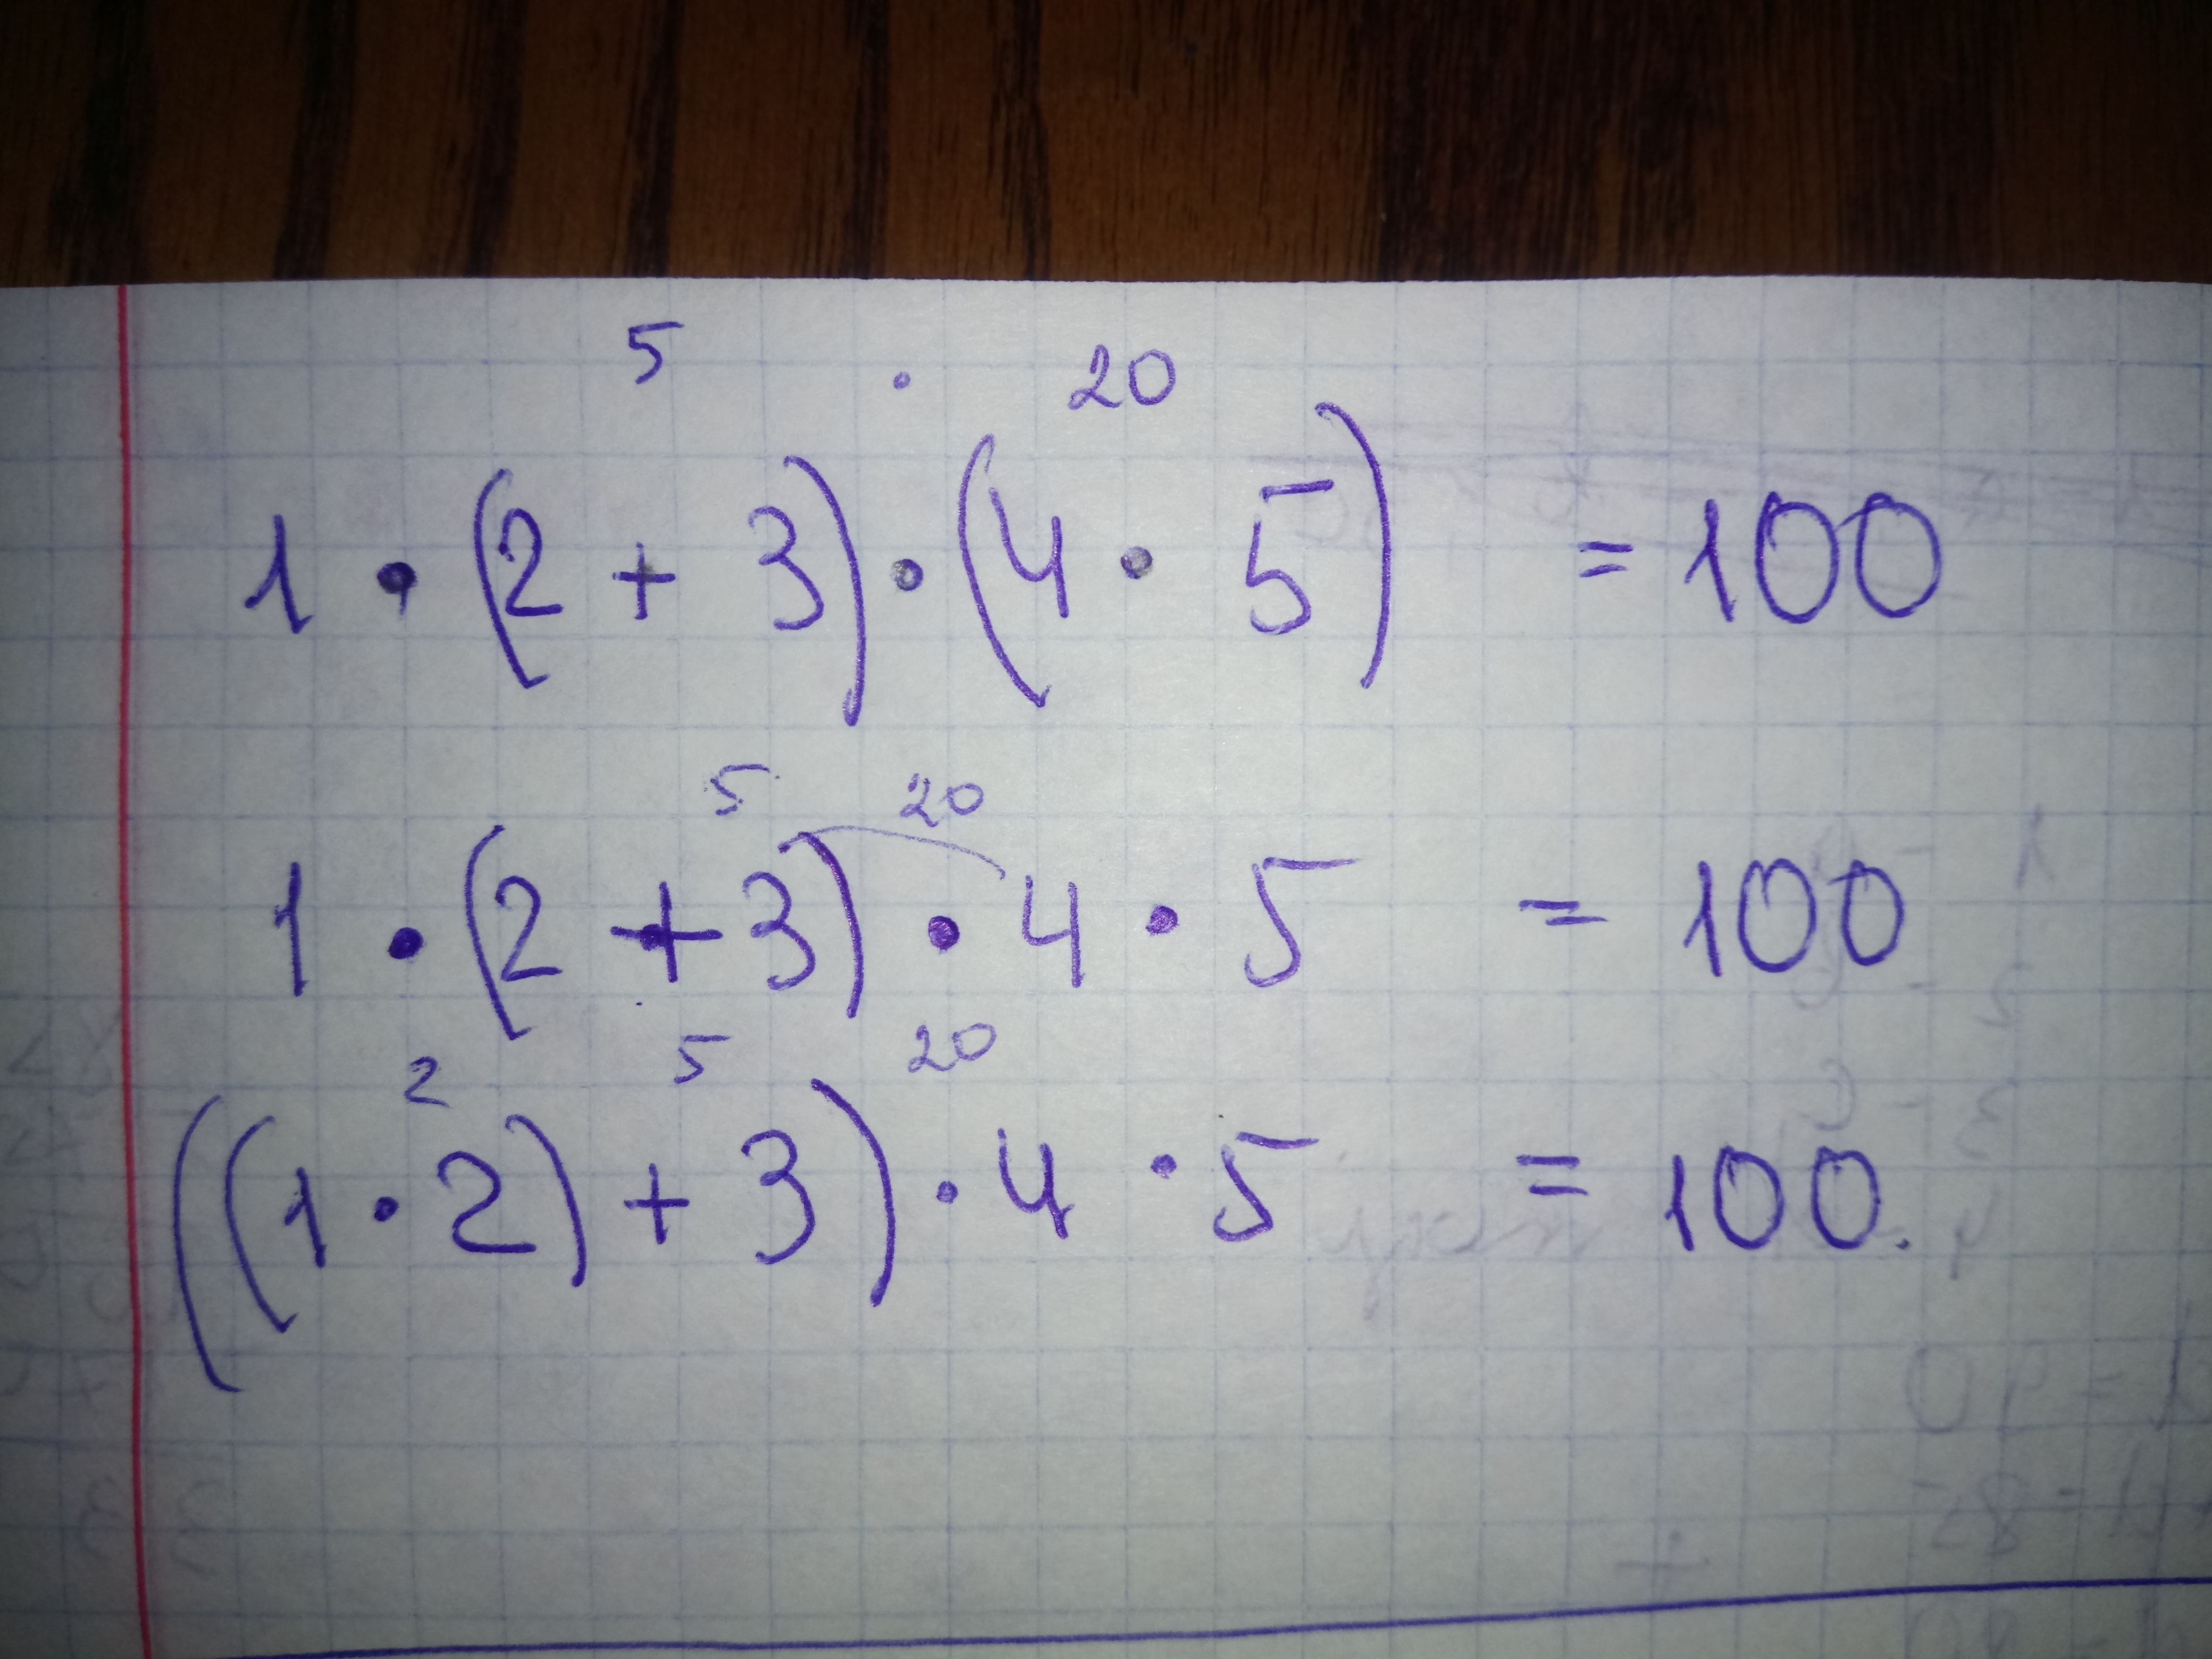 5 · 20
1 · (2 + 3) · (4 · 5) = 100
5 20
1 · (2 + 3) · 4 · 5 = 100
2 5 20
((1 · 2) + 3) · 4 · 5 = 100.